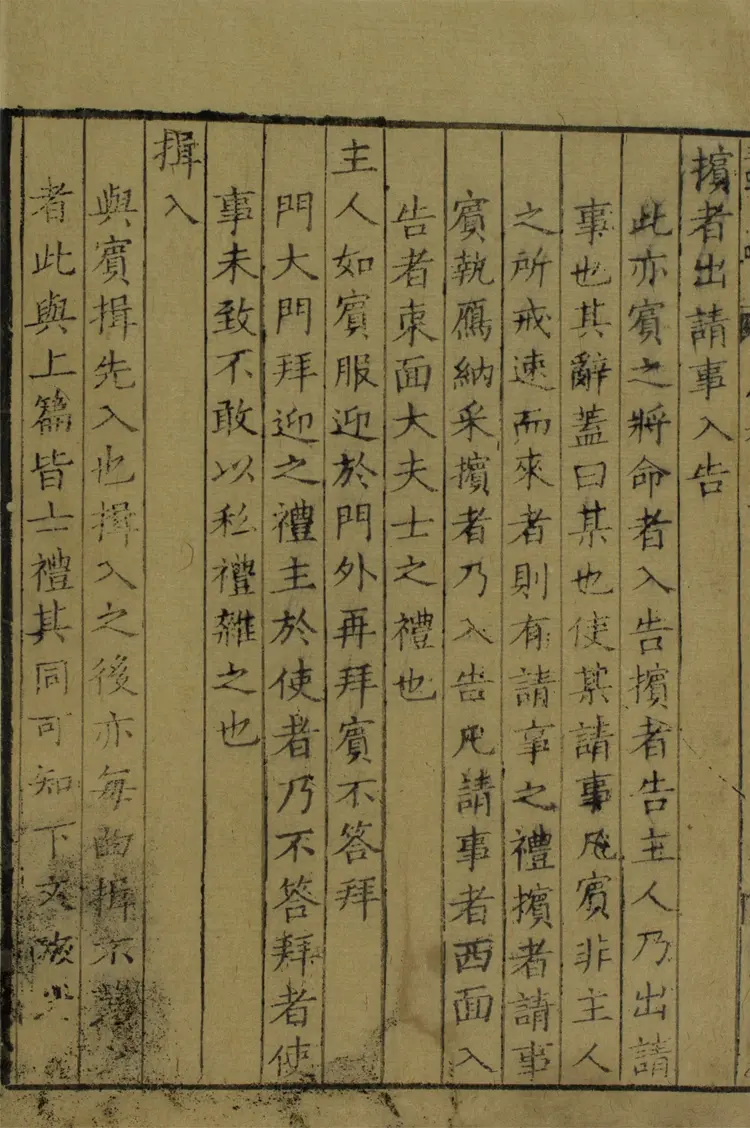 擯者出請事入告
此亦賓之將命者入告擯者告主人乃出請
事也其辭蓋曰某也使某請事凡賓非主人
之所戒速而來者則有請事之禮擯者請事
賓執鴈納采擯者乃入告凡請事者西面入
告者東面大夫士之禮也
主人如賓服迎於門外再拜賓不答拜
門大門拜迎之禮主於使者乃不答拜者使
事未致不敢以私禮雜之也
揖入
與賓揖先入也揖入之後亦每曲揖不
者此與上篇皆士禮其同可知下文放此